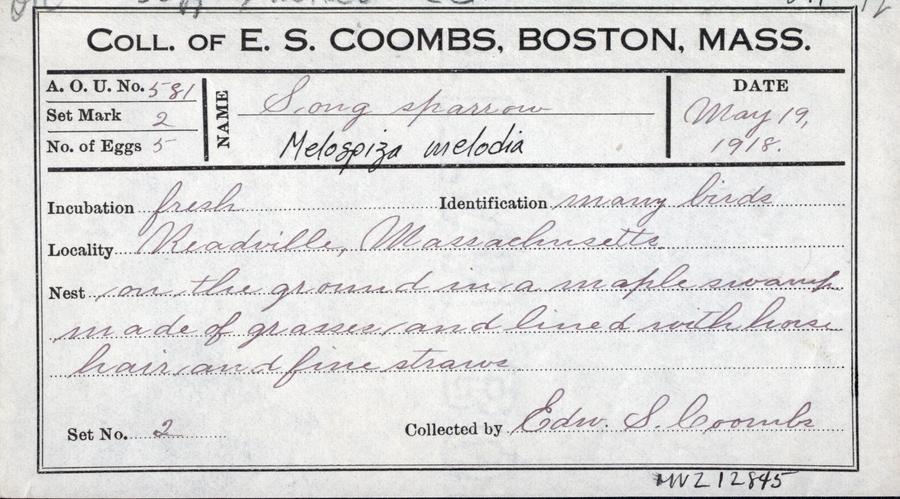 COLL. OF E. S. COOMBS, BOSTON, MASS.
A. O. U. No. 581
Set Mark 2
No. of Eggs 5
NAME
Song sparrow
Melospiza melodia
DATE
May 19,
1918.
Incubation fresh Identification many birds
Locality Readville, Massachusetts
Nest on the ground in a maple swamp
made of grasses and lined with horse
hair and fine straws
Set No. 2 Collected by Edw. S. Coombs
MVZ 12845